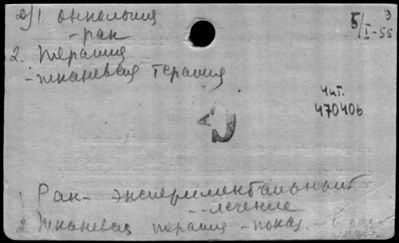 1. онкология
- рак
2. терапия
- тканевая терапия
5/3
I-55
Чит.
470406
1. Рак - экспериментальный
- лечение
2. Тканевая терапия - показ. -